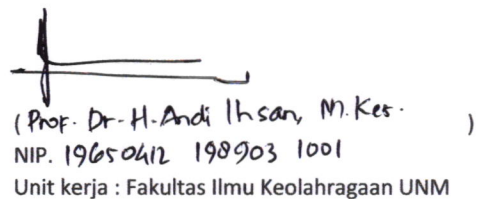 (Prof. Dr. H. Andi Ihsan, M. Kes. )
NIP. 19650412 198903 1001
Unit kerja : Fakultas Ilmu Keolahragaan UNM